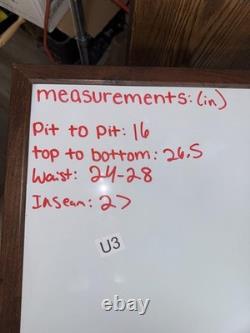 measurements: (in)
Pit to Pit: 16
top to bottom: 26.5
Waist: 24-28
Inseam: 27
U3
ebay